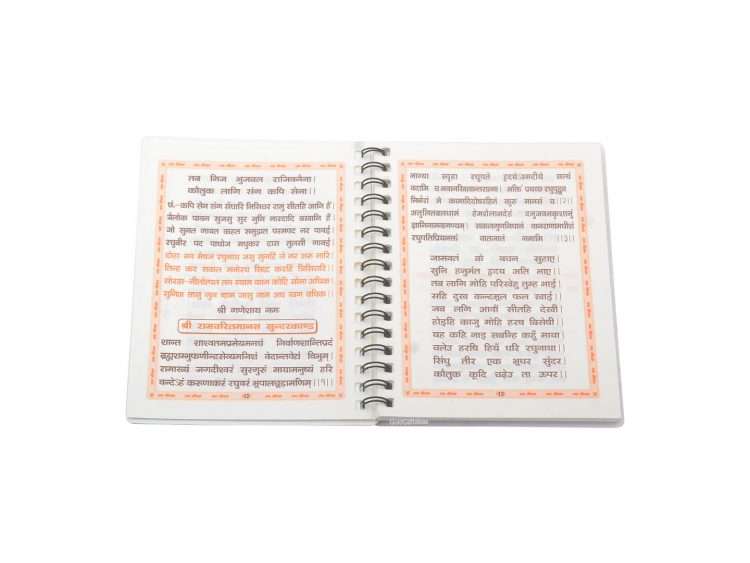 तब निज भुजबल राजिवनैना।
कौतुक लागि संग कपि सेना।।
छं.-कपि सेन संग संघारि निसिचर रामु सीतहि आनि हैं।
त्रैलोक पावन सुजसु सुर मुनि नारदादि बखानि हैं।
जो सुनत गावत कहत समुझत परमपद नर पावई
रघुबीर पद पाथोज मधुकर दास तुलसी गावई
दोहा- भव भेषज रघुनाथ जसु सुनहिं जे नर अरु नारि
तिन्ह कर सकल मनोरथ सिद्ध करहिं त्रिसिरारि।
सोरठा-नीलोत्पल तन स्याम काम कोटि सोभा अधिक।
सुनिअ तासु गुन ग्राम जासु नाम अघ खग बधिक।।
श्री गणेशाय नमः
श्री रामचरितमानस सुन्दरकाण्ड
शान्तं शाश्वतमप्रमेयमनघं निर्वाणशान्तिप्रदं
ब्रह्माशम्भुफणीन्द्रसेव्यमनिशं वेदान्तवेद्यं विभुम्।
रामाख्यं जगदीश्वरं सुरगुरुं मायामनुष्यं हरिं
वन्देऽहं करुणाकरं रघुवरं भूपालचूडामणिम्।।१।।
-12-
नान्या स्पृहा रघुपते हृदयेऽस्मदीये सत्यं
वदामि च भवानखिलान्तरात्मा। भक्तिं प्रयच्छ रघुपुङ्गव
निर्भरां मे कामादिदोषरहितं कुरु मानसं च।।२।।
अतुलितबलधामं हेमशैलाभदेहं दनुजवनकृशानुं
ज्ञानिनामग्रगण्यम्। सकलगुणनिधानं वानराणामधीशं
रघुपतिप्रियभक्तं वातजातं नमामि ।।३।।
जामवंत के बचन सुहाए।
सुनि हनुमंत हृदय अति भाए।।
तब लगि मोहि परिखेहु तुम्ह भाई।
सहि दुख कन्दमूल फल खाई।।
जब लगि आवौं सीतहि देखी।
होइहि काजु मोहि हरष बिसेषी।।
यह कहि नाइ सबन्हि कहुँ माथा।
चलेउ हरषि हियँ धरि रघुनाथा।।
सिंधु तीर एक भूधर सुंदर।
कौतुक कूदि चढ़ेउ ता ऊपर।।
-13-